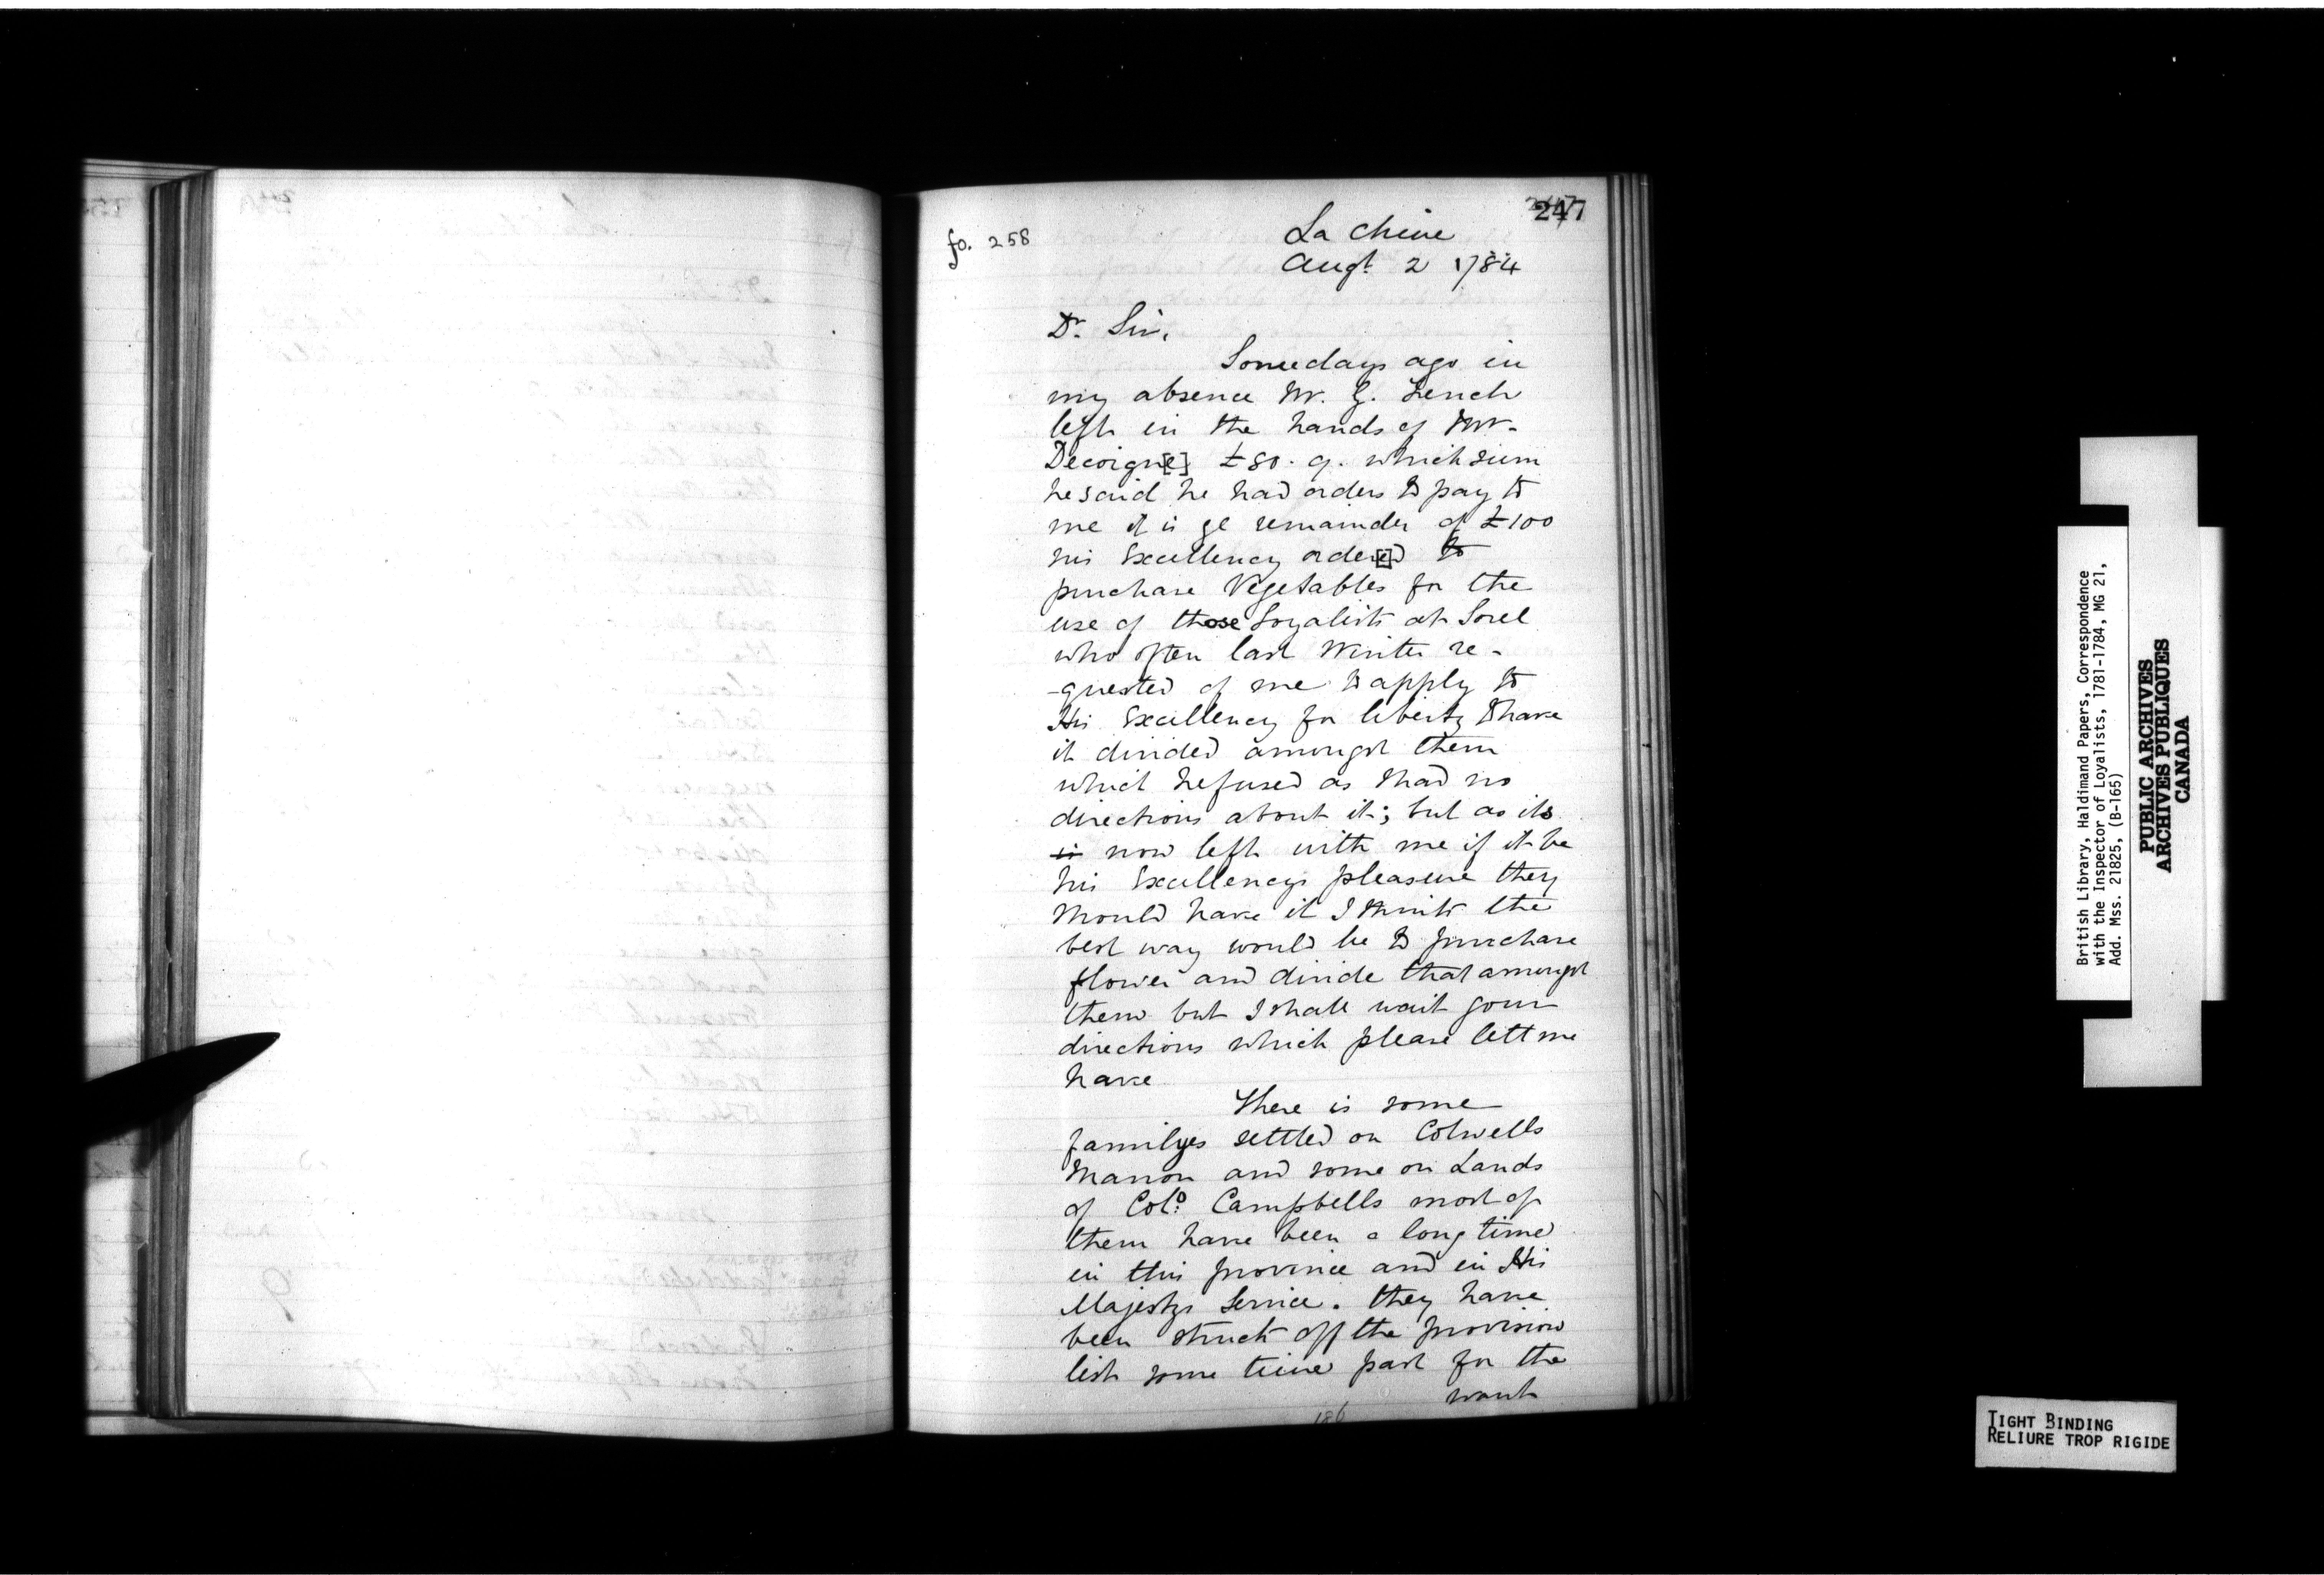 247
fo. 258
La Chine
Augt. 2 1784
Dr. Sir,
Somedays ago in
my absence Mr. G. Lench
left in the hands of Mr.
Decoign[e] £80. 9. which sum
he said he had orders to pay to
me it is ye remainder of £100
his Excellency order[e]d to
purchase Vegetables for the
use of those Loyalists at Sorel
who often last Winter re-
-quested of me to apply to
His Excellency for liberty to have
it divided amongst them
which I refused as I had no
directions about it; but as its
is now left with me if it be
his Excellencys pleasure they
should have it I think the
best way would be to purchase
flower and divide that amongst
them but I shall wait your
directions which please lett me
have
There is some
familyes settled on Colwells
Manor and some on Lands
of Colo. Campbells most of
them have been a long time
in this province and in His
Majestys Service. they have
been struck off the provision
list some time past for the
want
186
British Library, Haldimand Papers, Correspondence
with the Inspector of Loyalists, 1781-1784, MG 21,
Add. Mss. 21825, (B-165)
PUBLIC ARCHIVES
ARCHIVES PUBLIQUES
CANADA
TIGHT BINDING
RELIURE TROP RIGIDE